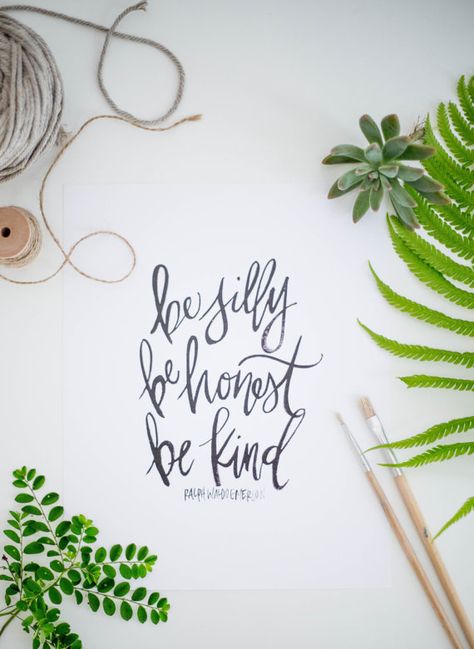 be silly
be honest
be kind
RALPH WALDO EMERSON